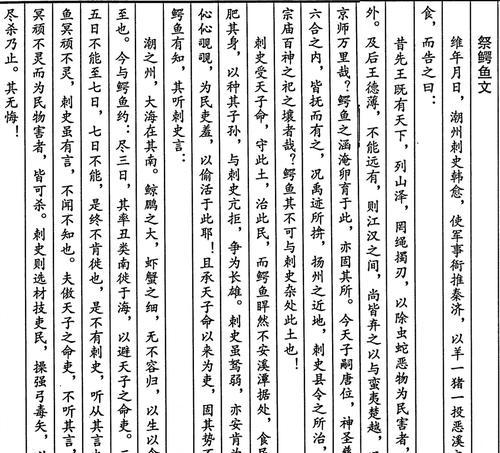 祭鳄鱼文
维年月日，潮州刺史韩愈，使军事衙推秦济，以羊一猪一投恶溪
食，而告之曰：
昔先王既有天下，列山泽，罔绳擉刃，以除虫蛇恶物为民害者，
外。及后王德薄，不能远有，则江汉之间，尚皆弃之以与蛮夷楚越，
京师万里哉？鳄鱼之涵淹卵育于此，亦固其所。今天子嗣唐位，神圣
六合之内，皆抚而有之，况禹迹所揜，扬州之近地，刺史县令之所治，
宗庙百神之祀之壤者哉？鳄鱼其不可与刺史杂处此土也！
刺史受天子命，守此土，治此民，而鳄鱼睅然不安溪潭据处，食民
肥其身，以种其子孙，与刺史亢拒，争为长雄。刺史虽驽弱，亦安肯为
伈伈睍睍，为民吏羞，以偷活于此耶！且承天子命以来为吏，固其势不
鳄鱼有知，其听刺史言：
潮之州，大海在其南。鲸鹏之大，虾蟹之细，无不容归，以生以
至也。今与鳄鱼约：尽三日，其率丑类南徙于海，以避天子之命吏。
五日不能至七日，七日不能，是终不肯徙也，是不有刺史，听从其言
鱼冥顽不灵，刺史虽有言，不闻不知也。夫傲天子之命吏，不听其言，
冥顽不灵而为民物害者，皆可杀。刺史则选材技吏民，操强弓毒矢，
尽杀乃止。其无悔！